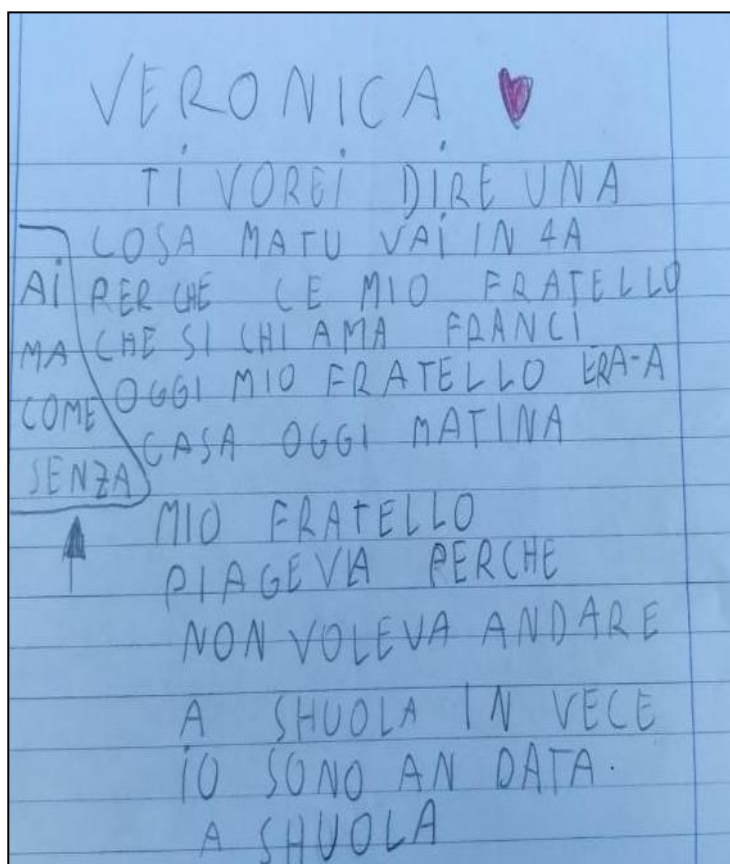 VERONICA
TI VOREI DIRE UNA
COSA MATU VAI IN 4A
PERCHE CE MIO FRATELLO
CHE SI CHI AMA FRANCI
OGGI MIO FRATELLO ERA-A
CASA OGGI MATINA
MIO FRATELLO
PIAGEVA PERCHE
NON VOLEVA ANDARE
A SHUOLA IN VECE
IO SONO AN DATA.
A SHUOLA
AI
MA
COME
SENZA